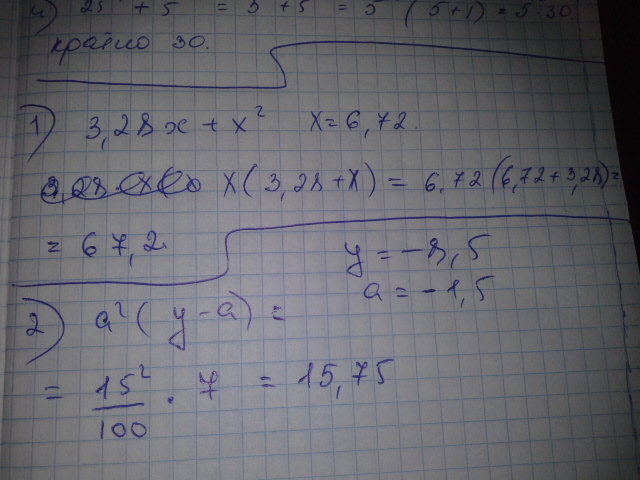 кратно 30.
1) 3,28x + x² x = 6,72
x(3,28+x) = 6,72(6,72+3,28)=
= 67,2
y = -8,5
a = -1,5
2) a²(y-a) =
= 15²/100 · 7 = 15,75